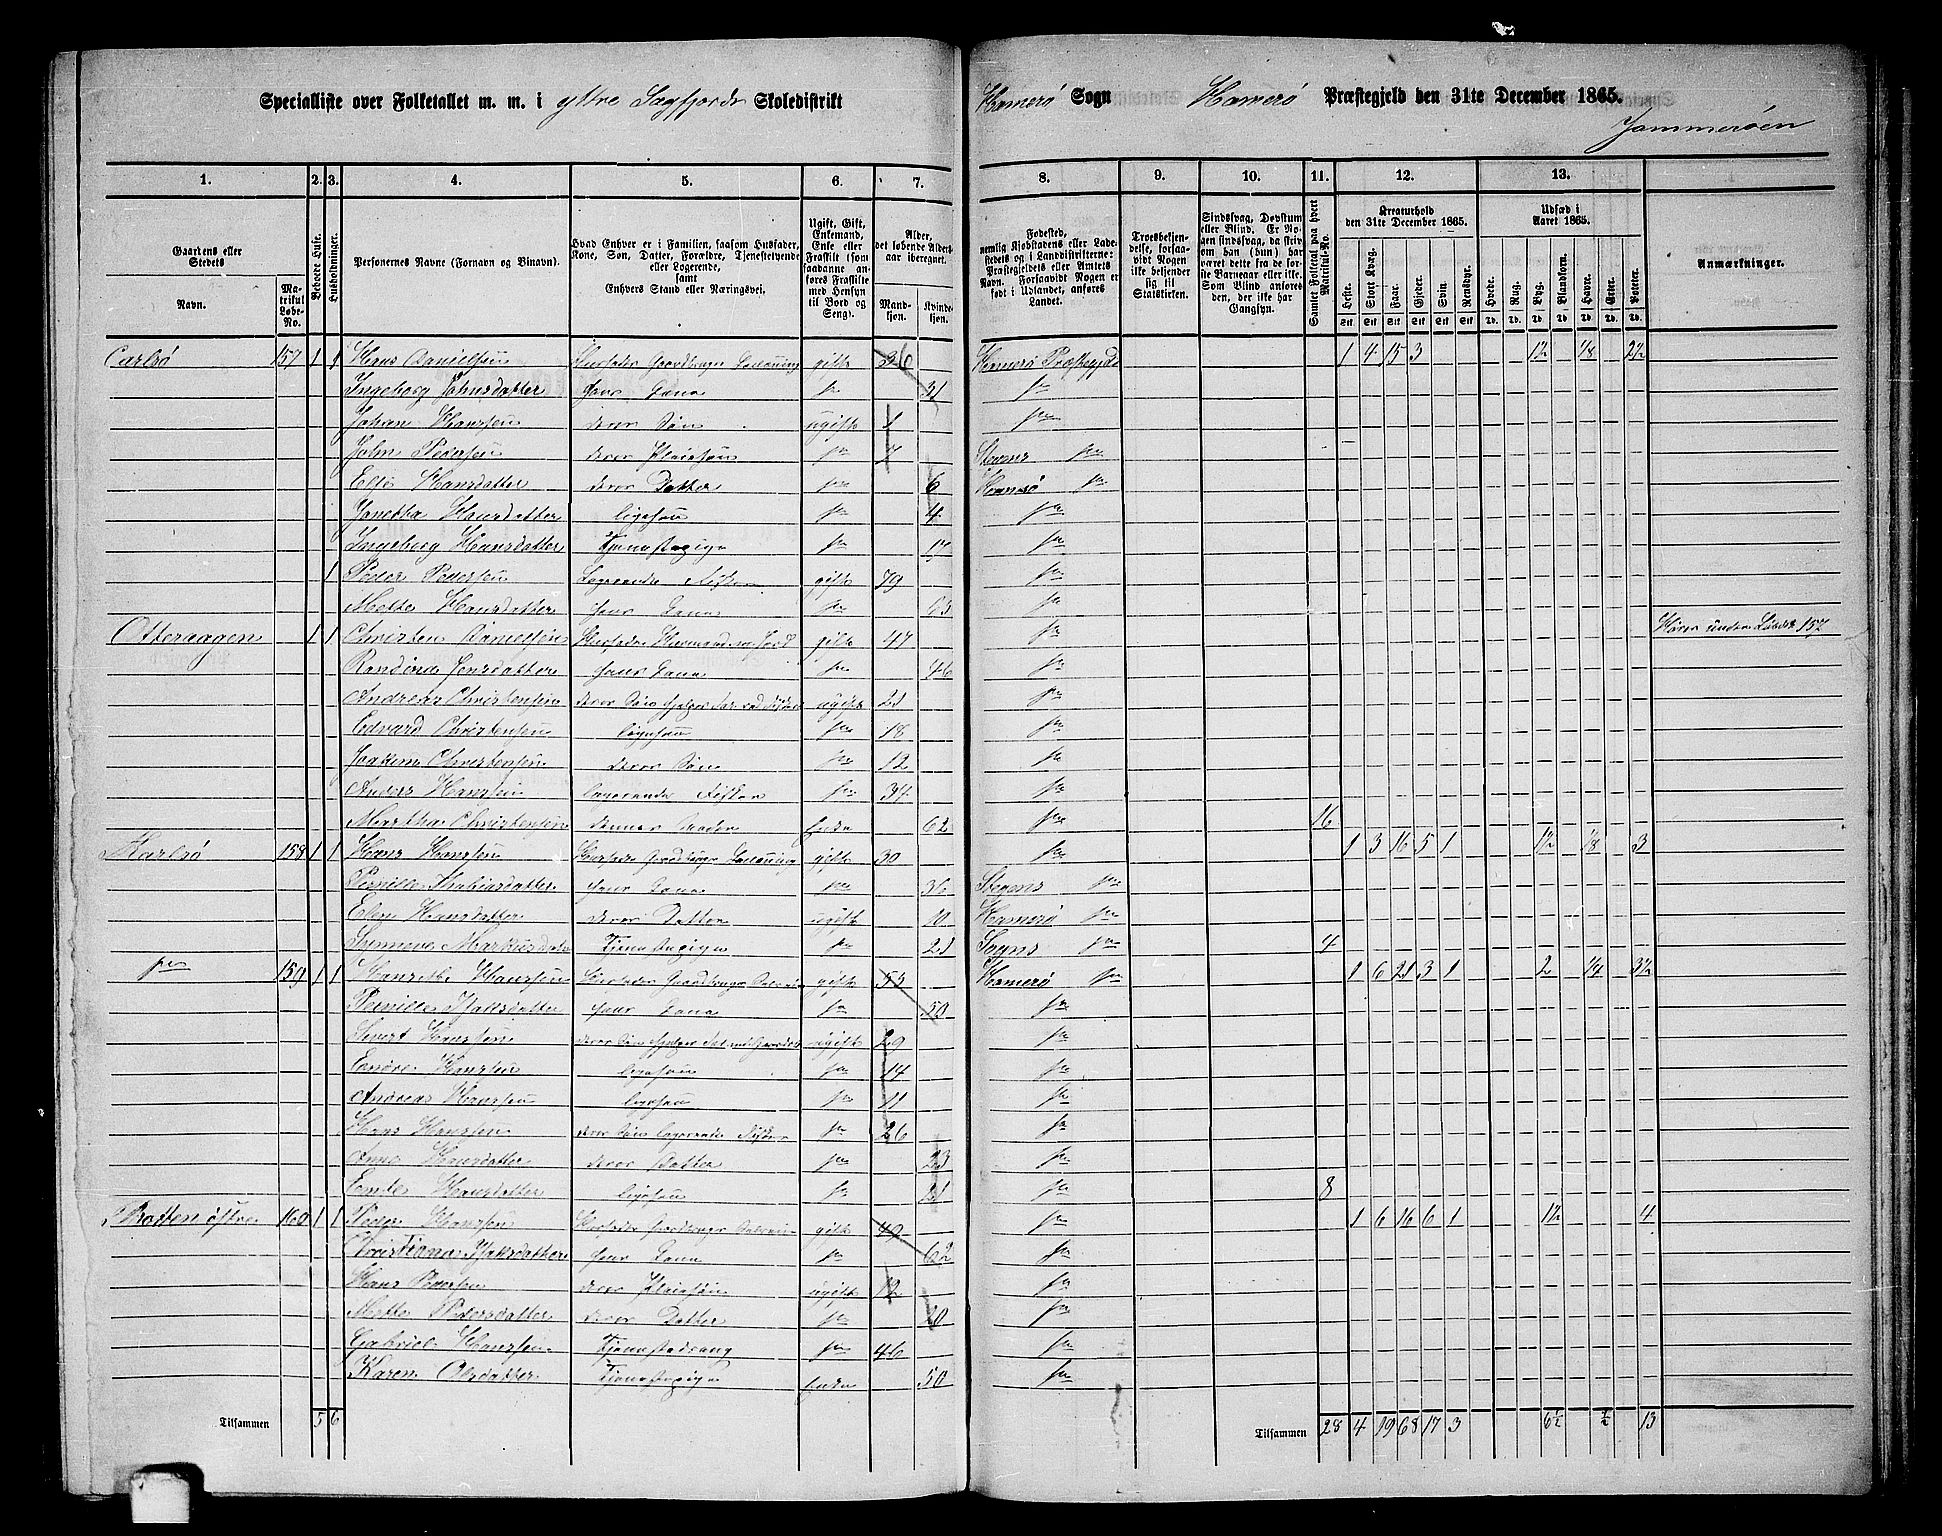 Specialliste over Folketallet m. m. i ytre Sagfjords Skoledistrikt Hamerø Sogn Hamerø Præstegjeld den 31te December 1865.
Jammerøen
1. 2. 3. 4. 5. 6. 7. 8. 9. 10. 11. 12. 13.
Gaardens eller Stedets Navn. Matrikul Løbe-No. Beboede Huse. Husholdninger. Personernes Navne (Fornavn og Binavn). Hvad Enhver er i Familien, saasom Husfader, Kone, Søn, Datter, Forældre, Tjenestetyende eller Logerende, samt Enhvers Stand eller Næringsvei. Ugift, Gift, Enkemand, Enke eller Fraskilt (som saadanne anføres Fraskilte med Hensyn til Bord og Seng). Alder, det løbende Alders-aar iberegnet. Mandkjøn. Kvindekjøn.
Fødested, nemlig Kjøbstadens eller Ladestedets eller i Landdistrikterne: Præstegjeldets eller Amtets Navn. Forsaavidt Nogen er født i Udlandet, anføres Landet. Troesbekjendelse, forsaavidt Nogen ikke bekjender sig til Statskirken. Sindssvag, Døvstum eller Blind. Er Nogen sindssvag, da skrives om han (hun) har været dette fra de første Barneaar eller ikke. Som Blind anføres den, der ikke har Gangsyn. Samlet Folketal paa hvert Matrikul-No. Kreaturhold den 31te December 1865. Heste. Stort Kvæg. Faar. Gjeder. Svin. Rensdyr. Udsæd i Aaret 1865. Hvede. Rug. Byg. Blandkorn. Havre. Erter. Poteter. Anmærkninger.
Carlsø 157 1 1 Hans Danielsen Husfader Gaardbruger Selveier gift 36 Hamerø Præstegjeld 1 4 15 3 1½ ⅛ 2½
Ingeborg Johnsdatter hans Kone do 31 do
Johan Hansen deres Søn ugift 1 do
John Pedersen deres Pleiesøn do 7 do
Else Hansdatter deres Datter do 6 Hamerø do
Hansdatter ligesaa do 4 do
Ingeborg Hansdatter Tjenestepige do 17 do
1 Peder Pedersen Logerende Fisker gift 79 do
Mette Hansdatter hans Kone do do
1 1 Christen Danielsen Husfader gift 47 do Hører under Løbe 157
Jensdatter hans Kone do 46 do
Andreas Christensen deres Søn ugift 21 do
Edvard Christensen ligesaa do 18 do
Joakim Christensen deres Søn do 12 do
Anders Hansen logerende Fisker do 34 do
Martha Christensen Enke 62 do 16
Karlsø 158 1 1 Hans Hansen Husfader Gaardbruger gift 30 do 1 3 16 5 1 1½ ⅛ 3
Pernille hans Kone do 36 Stegens do
Elen Hansdatter deres Datter ugift 10 Hamerø do
Synneve Markusdatter Tjenestepige do 21 do 4
do 159 1 1 Hansen Husfader Gaardbruger gift 53 Hamerø do 1 6 21 3 1 2 ¼ 3½
Pernille Isaksdatter hans Kone do 50 do
Sivert Hansen ugift 29 do
Hansen ligesaa do 14 do
Andreas Hansen ligesaa do 11 do
Hans Hansen deres Søn logerende Fisker do 26 do
Anne Hansdatter deres Datter do 23 do
Hansdatter ligesaa do 21 do 8
Botten østre 160 1 1 Peder Hansen Husfader Gaardbruger gift 49 do 1 6 16 6 1 1½ 4
Christiana Isaksdatter hans Kone do 62 do
Hans Pedersen deres Pleiesøn ugift 12 do
Mette Pedersdatter deres Datter do 20 do
Gabriel Hansen Tjenestedreng do 46 do
Karen Olsdatter Tjenestepige Enke 50 do
Tilsammen 5 6 Tilsammen 28 4 19 68 17 3 6½ ½ 13